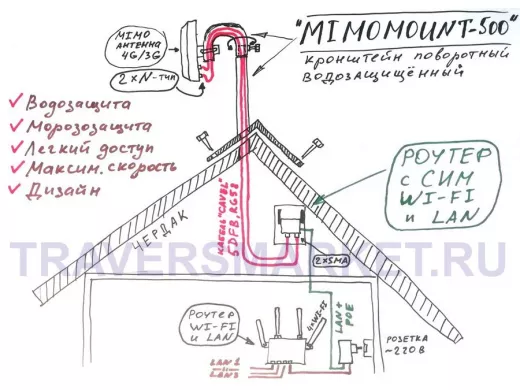 MIMO
АНТЕННА
4G/3G
2×N-тип
"MIMOMOUNT-500"
кронштейн поворотный
водозащищённый
✓ Водозащита
✓ Морозозащита
✓ Легкий доступ
✓ Максим. скорость
✓ Дизайн
РОУТЕР
с СИМ
WI-FI
и LAN
ЧЕРДАК
КАБЕЛЬ "CAVEL"
5DFB, RG58
2×SMA
TRAVERSMARKET.RU
РОУТЕР
WI-FI
и LAN
WI-FI
LAN +
POE
РОЗЕТКА
~220В
LAN1